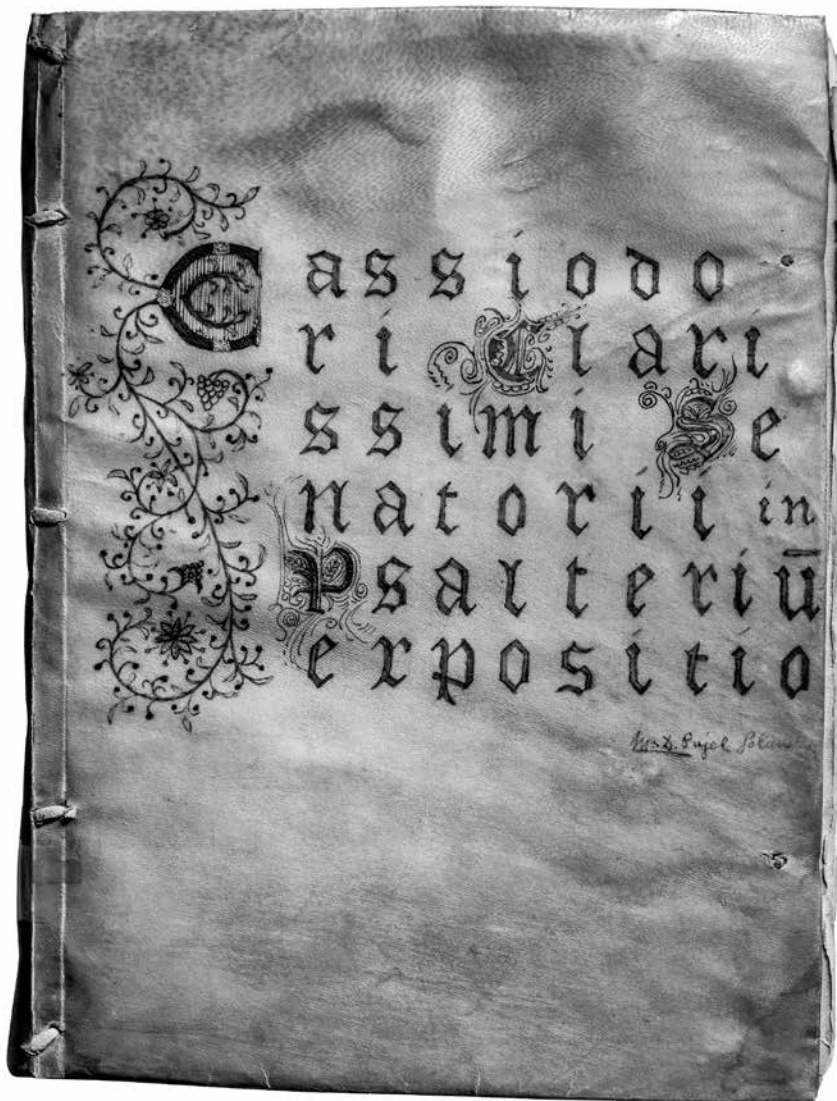 Cassiodo
ri Clari
ssimi Se
natorii in
Psalteriū
expositio